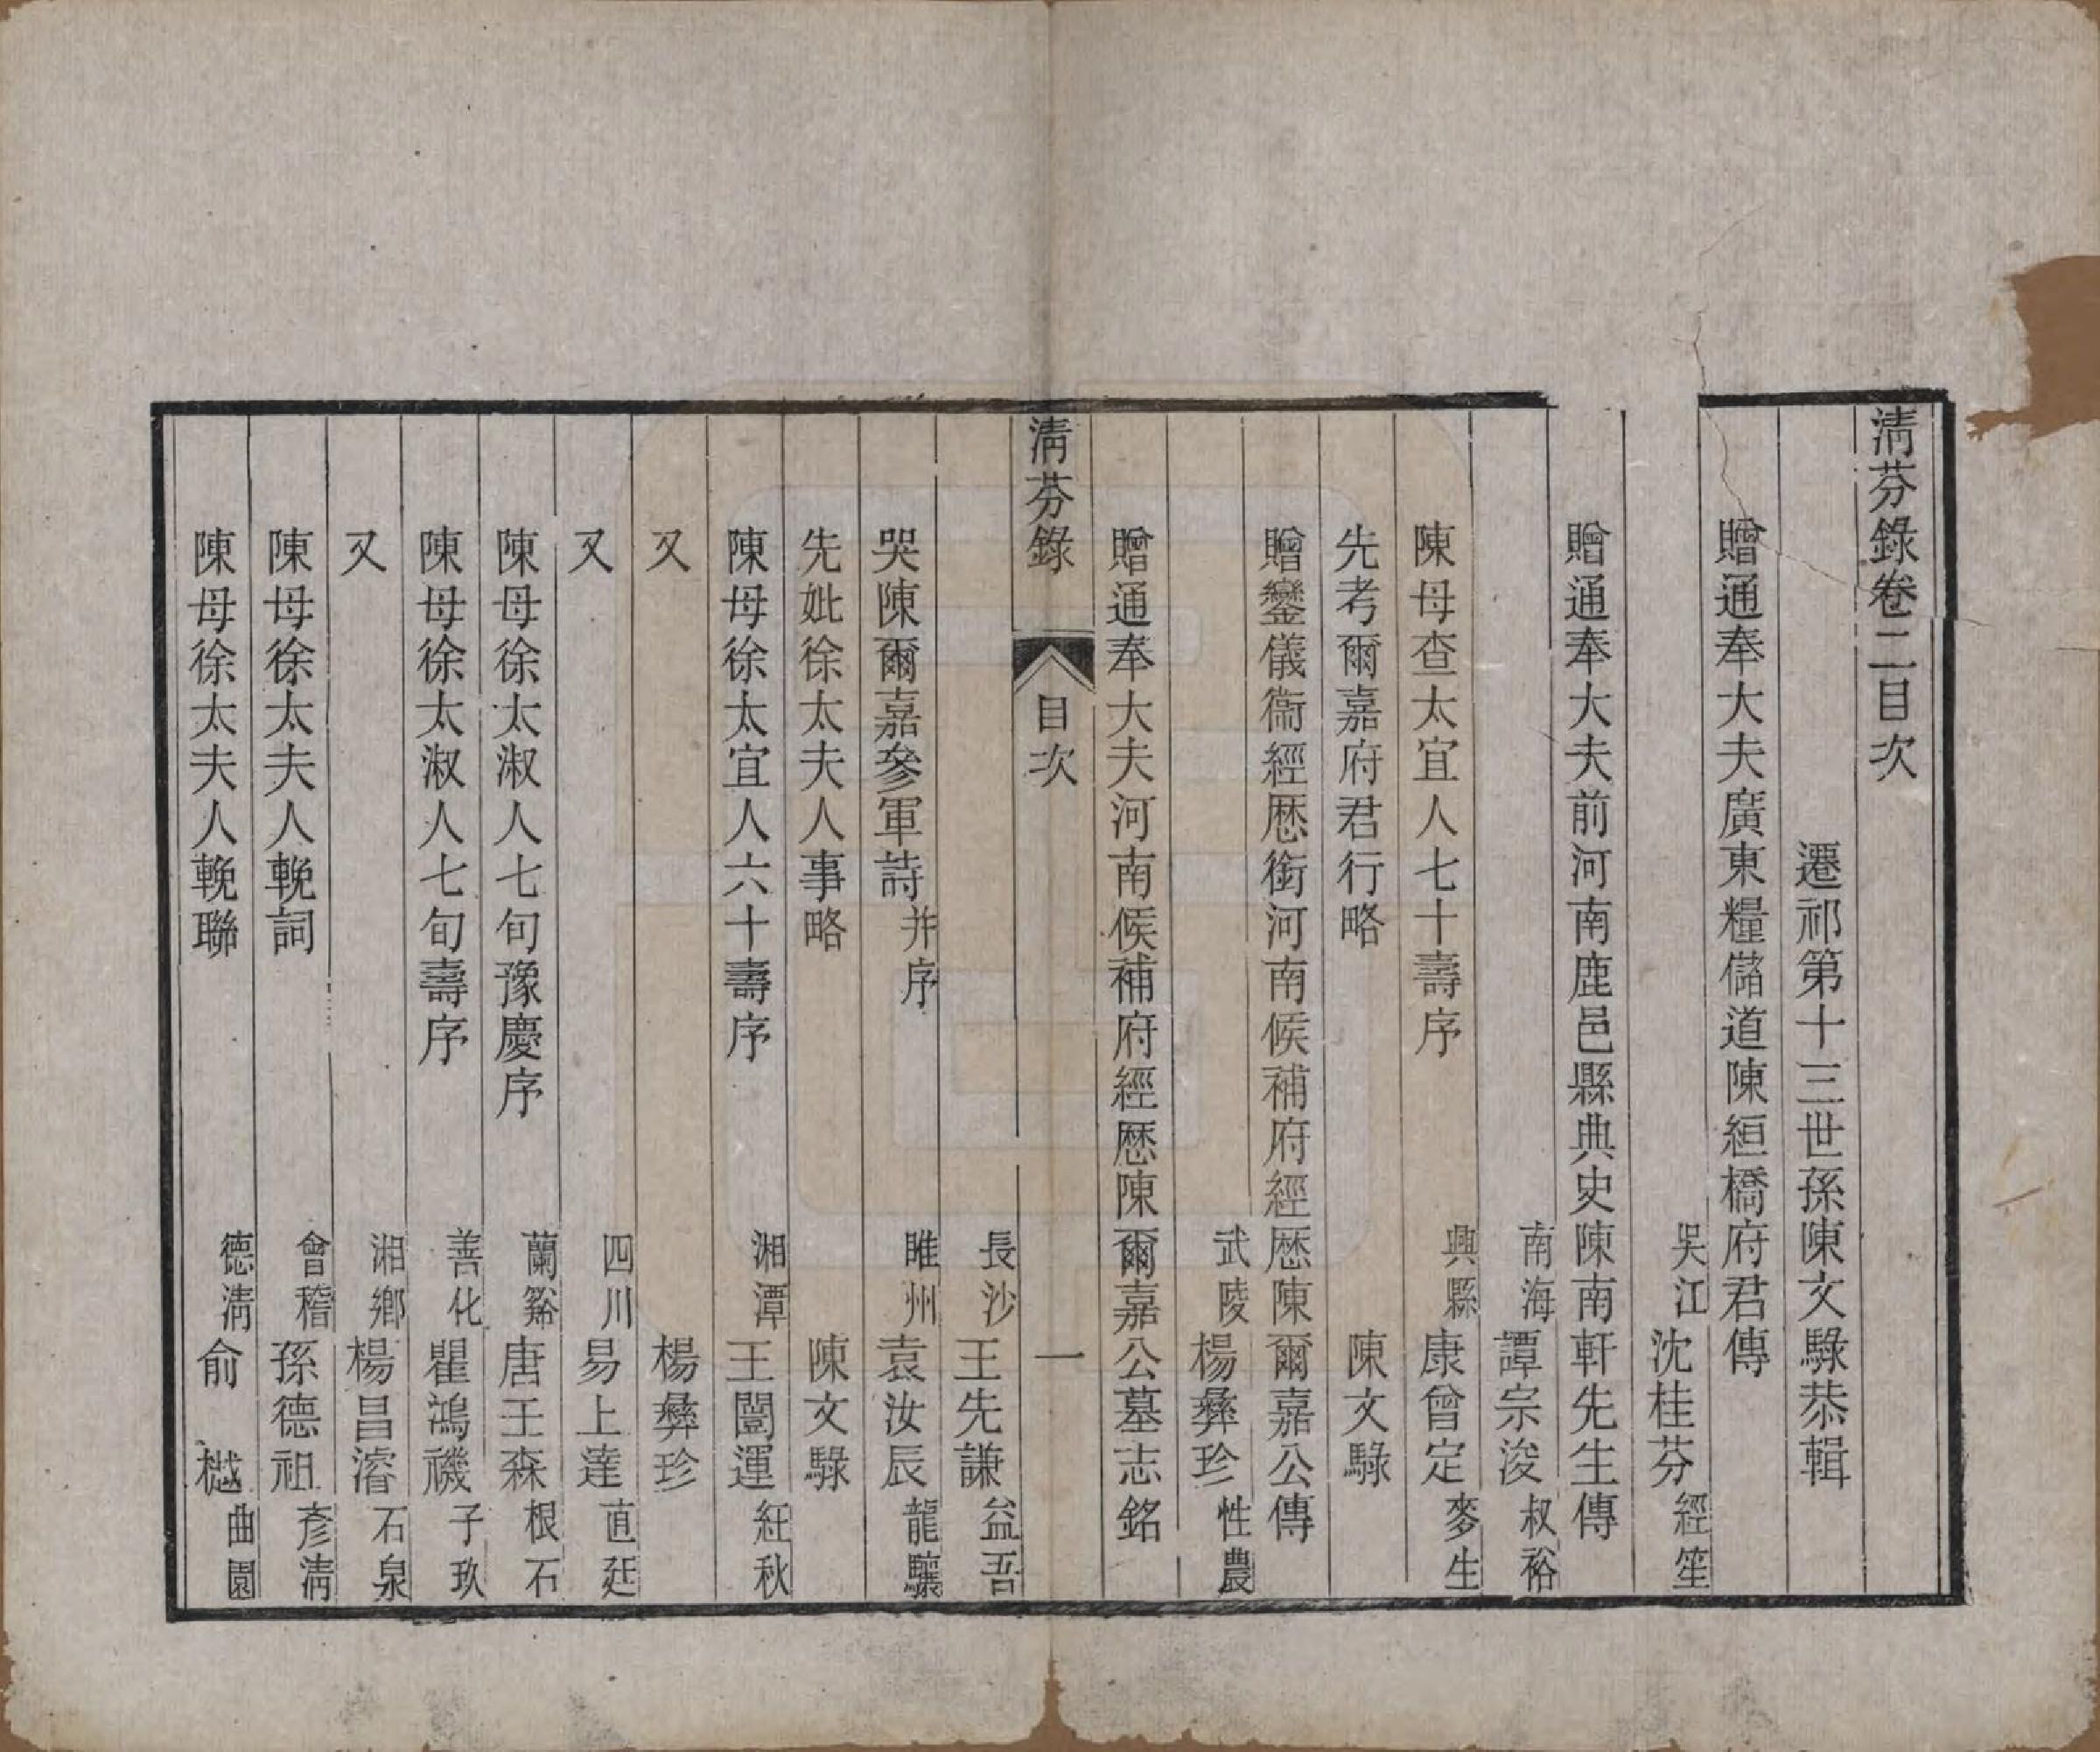 清芬錄卷二目次
遷祁第十三世孫陳文騄恭輯
贈通奉大夫廣東糧儲道陳絙橋府君傳
吳江沈桂芬經笙
贈通奉大夫前河南鹿邑縣典史陳南軒先生傳
南海譚宗浚叔裕
陳母查太宜人七十壽序 興縣康曾定麥生
先考爾嘉府君行略 陳文騄
贈鑾儀衞經歷銜河南候補府經歷陳爾嘉公傳
武陵楊彝珍性農
贈通奉大夫河南候補府經歷陳爾嘉公墓志銘
清芬錄 目次 一
長沙王先謙益吾
哭陳爾嘉參軍詩并序 睢州袁汝辰龍驤
先妣徐太夫人事略 陳文騄
陳母徐太宜人六十壽序 湘潭王闓運紝秋
又 楊彝珍
又 四川易上達直廷
陳母徐太淑人七旬豫慶序 蘭谿唐壬森根石
陳母徐太淑人七旬壽序 善化瞿鴻禨子玖
又 湘鄉楊昌濬石泉
陳母徐太夫人輓詞 會稽孫德祖彥清
陳母徐太夫人輓聯 德清俞樾曲園